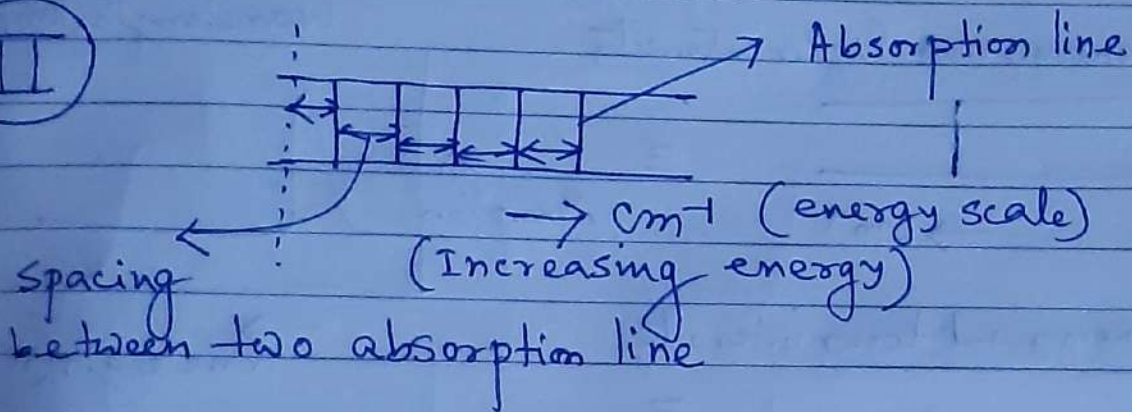 II
Absorption line
→ cm⁻¹ (energy scale)
(Increasing energy)
spacing
between two absorption line